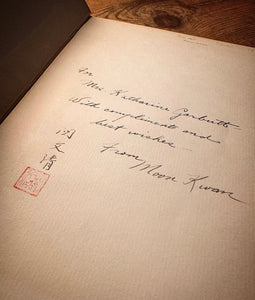 To
Mrs. Katharine
With compliments and
best wishes –
from
Moon Kwan
文清